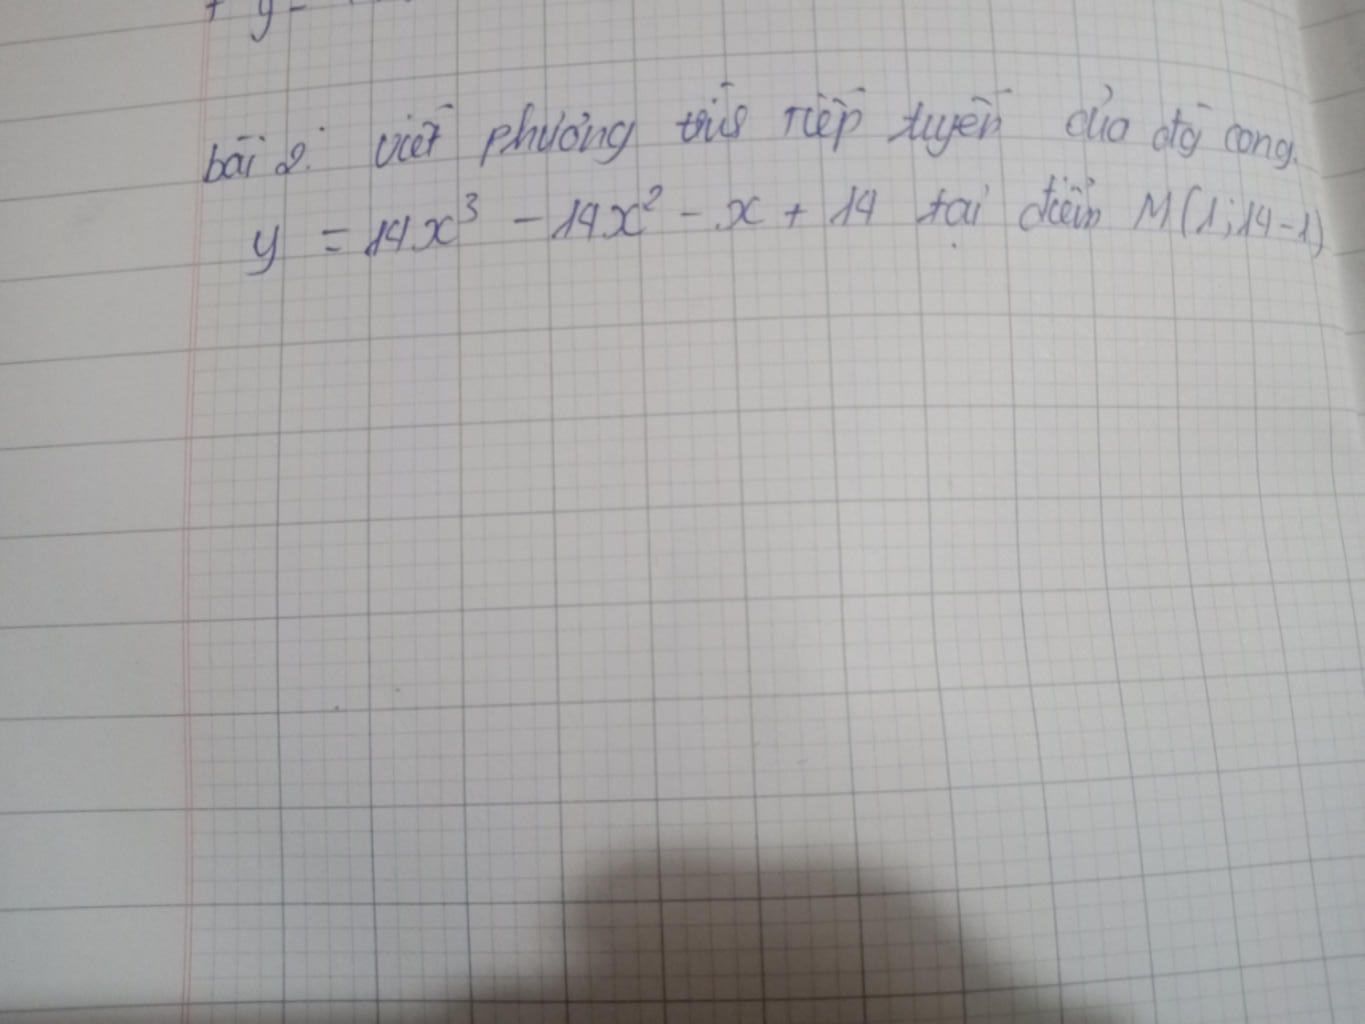 + y =
bài 2: viết phương trình tiếp tuyến của đg cong.
y = 14x³ - 14x² - x + 14 tại điểm M(1;14-1)